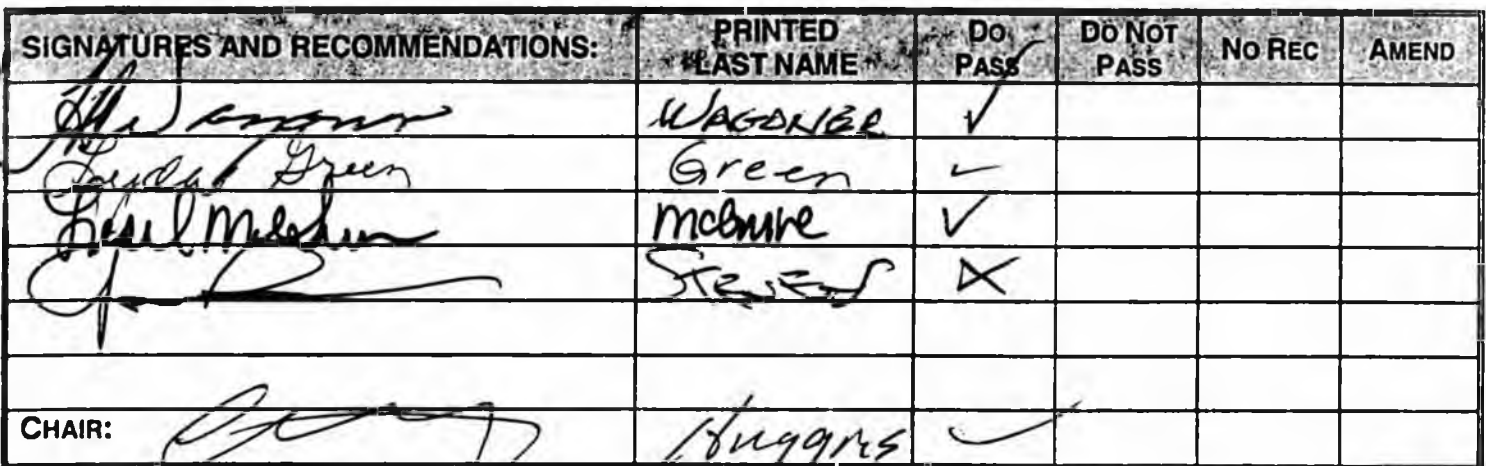 SIGNATURES AND RECOMMENDATIONS: PRINTED LAST NAME DO PASS DO NOT PASS NO REC AMEND
WAGONER ✓
Lyda Green Green ✓
McGuire ✓
Stevens X
CHAIR: Huggins ✓